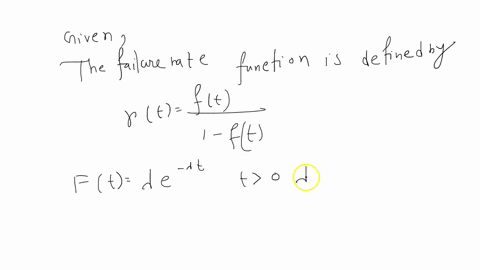 Given,
The failure rate function is defined by
r(t) = f(t) / 1 - f(t)
F(t) = de^-dt t > 0 d